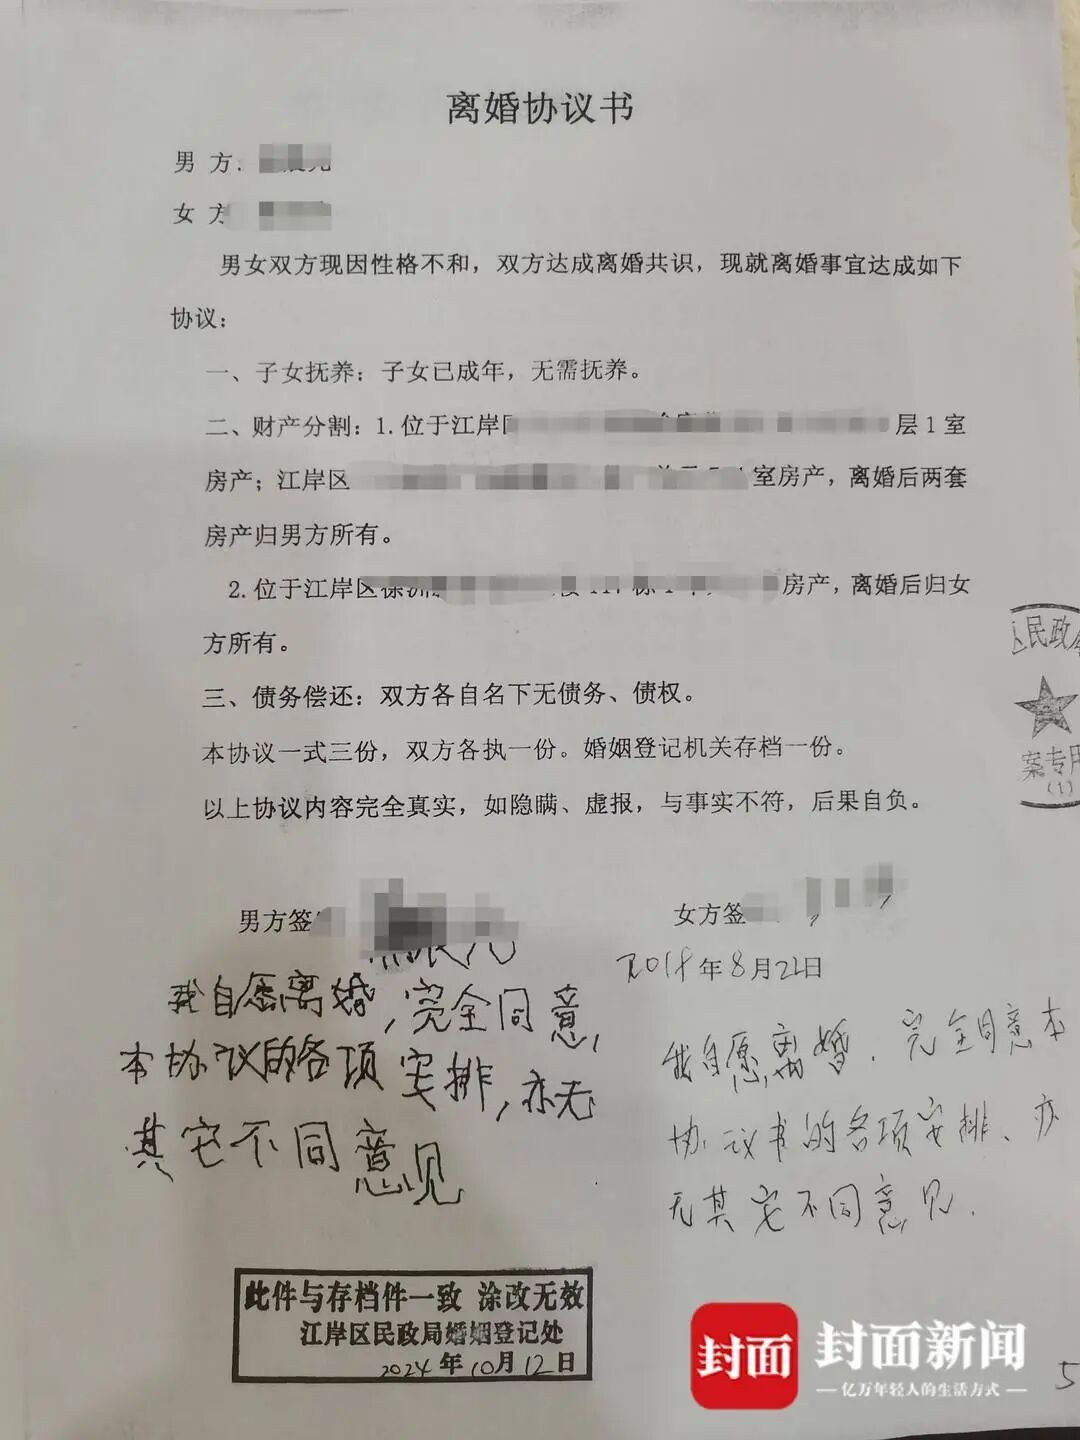 离婚协议书
男 方:
女 方
男女双方现因性格不和，双方达成离婚共识，现就离婚事宜达成如下
协议：
一、子女抚养：子女已成年，无需抚养。
二、财产分割：1.位于江岸 层1室
房产；江岸区 室房产，离婚后两套
房产归男方所有。
2.位于江岸区 房产，离婚后归女
方所有。
三、债务偿还：双方各自名下无债务、债权。
本协议一式三份，双方各执一份。婚姻登记机关存档一份。
以上协议内容完全真实，如隐瞒、虚报，与事实不符，后果自负。
区民政
案专用
(1)
男方签
女方签
年8月22日
我自愿离婚，完全同意
本协议的各项安排，亦无
其它不同意见
我自愿离婚．完全同意本
协议书的各项安排、亦
无其它不同意见．
此件与存档件一致 涂改无效
江岸区民政局婚姻登记处
2024年10月12日
封面
封面新闻
亿万年轻人的生活方式
5